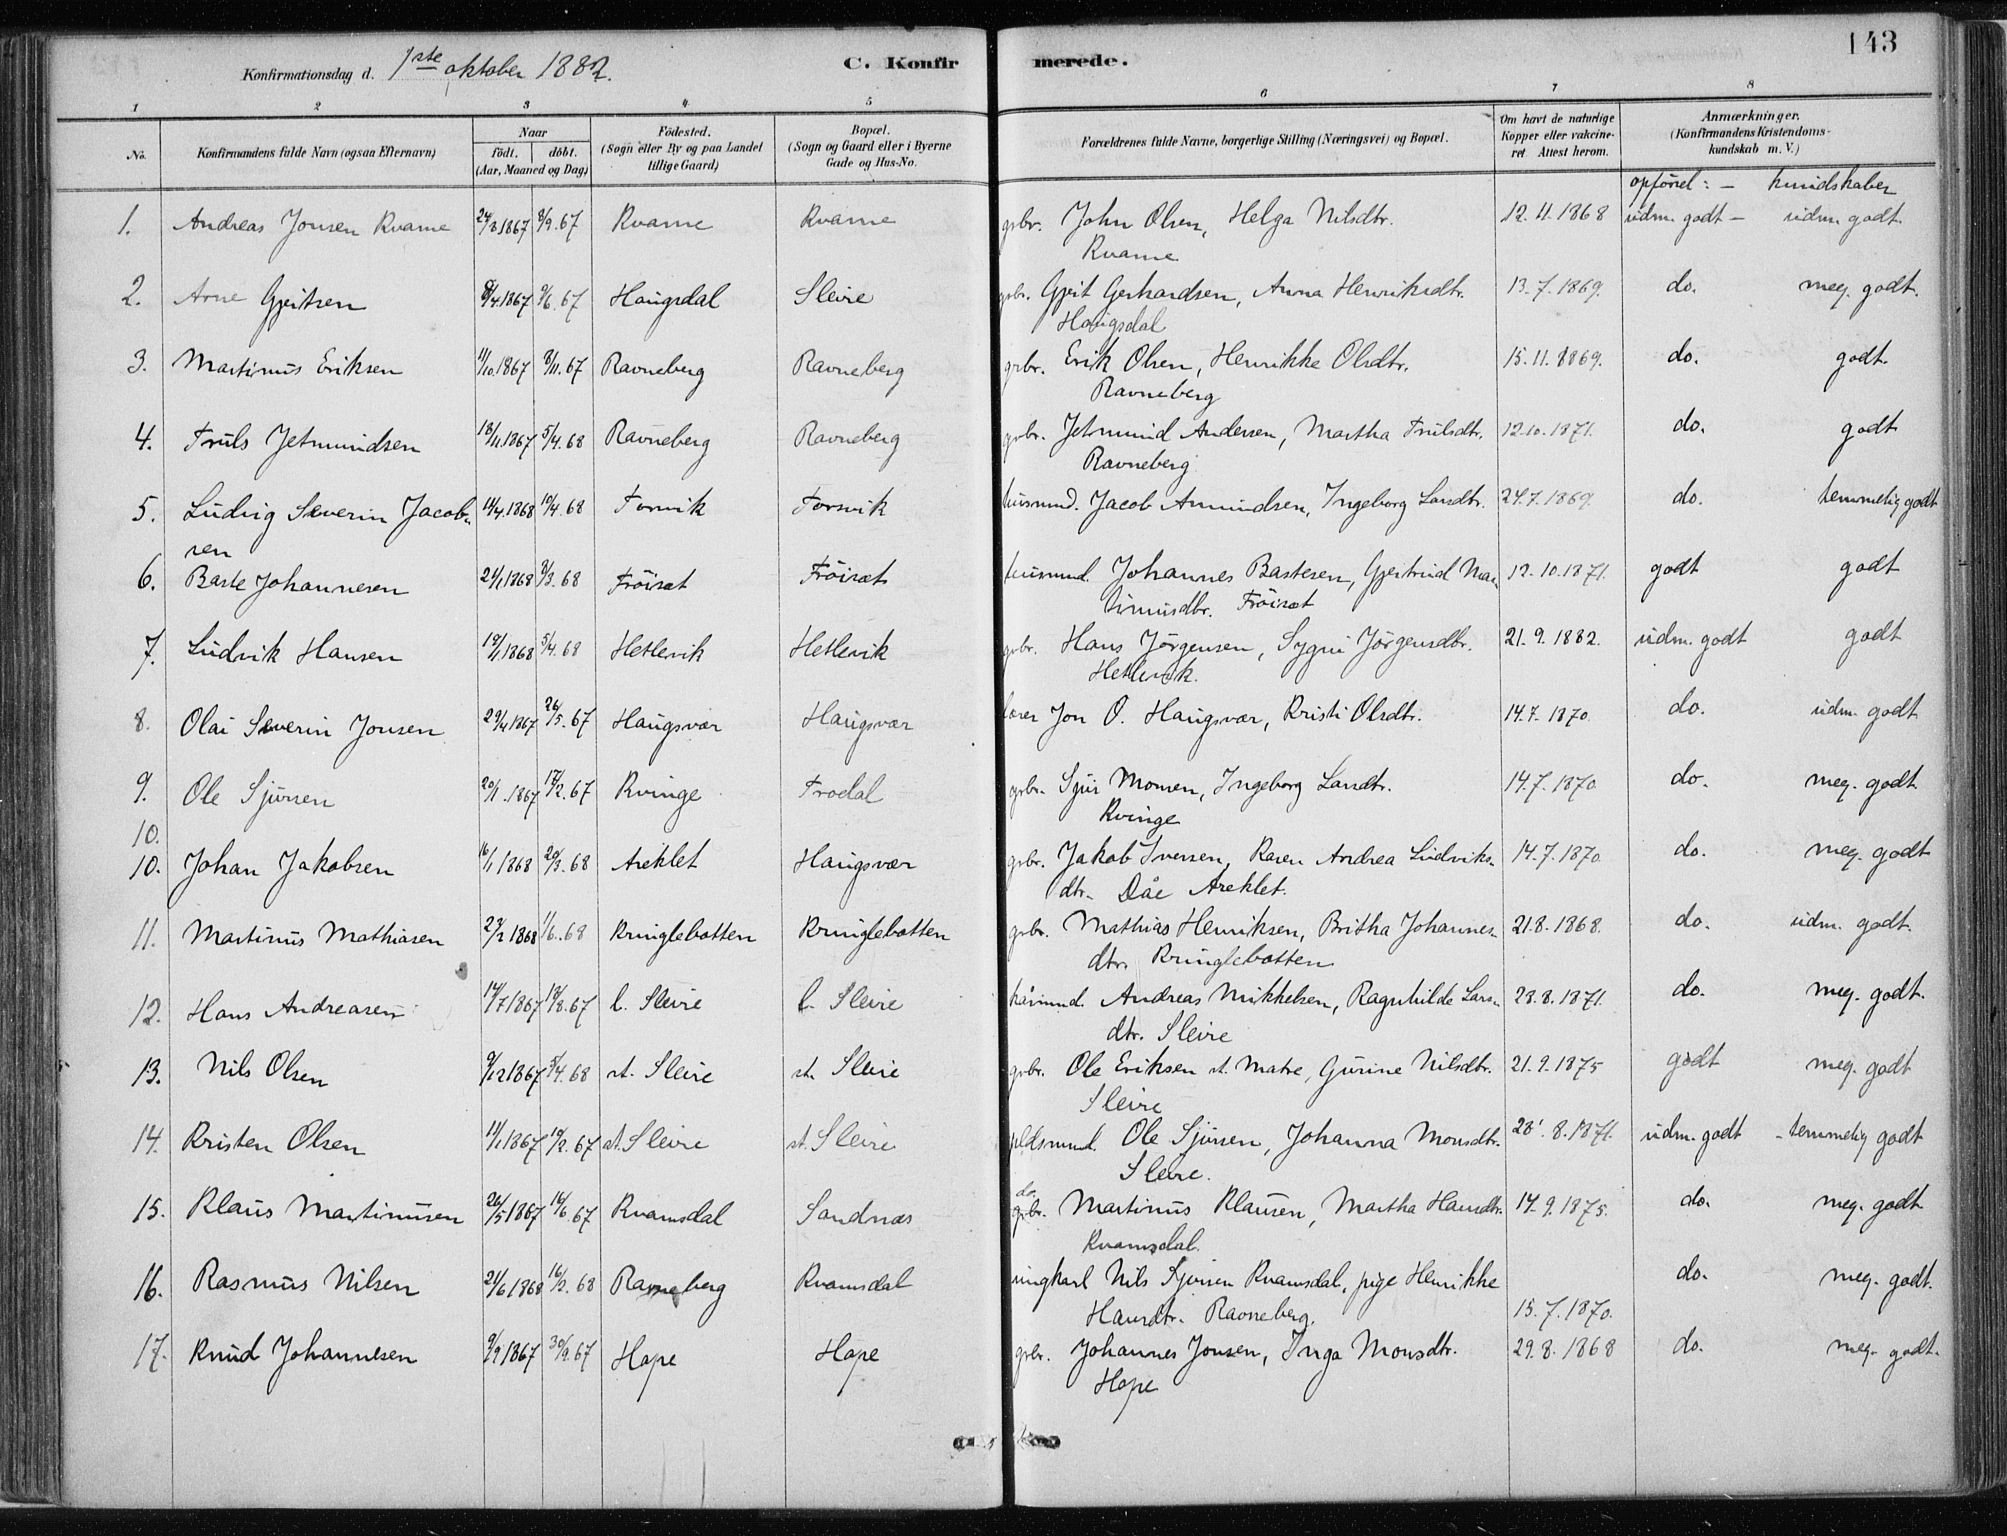 143
Konfirmationsdag d. 1ste oktober 1882.
C. Konfirmerede.
1 2 3 4 5 6 7 8
No. Konfirmandens fulde Navn (ogsaa Efternavn) Naar født. døbt. (Aar, Maaned og Dag) Fødested. (Sogn eller By og paa Landet tillige Gaard) Bopæl. (Sogn og Gaard eller i Byerne Gade og Hus-No. Forældrenes fulde Navne, borgerlige Stilling (Næringsvei) og Bopæl. Om havt de naturlige Kopper eller vakcineret. Attest herom. Anmærkninger, (Konfirmandens Kristendomskundskab m. V.)
opførsel: – kundskaber
1. Andreas Jonsen Kvame 24/8 1867 8/9. 67 Kvame Kvame gbr. John Olsen, Helga Nilsdtr. 12.11.1868 udm. godt – udm. godt.
Kvame
2. Arne Gjertsen 8/4.1867 9/6. 67 Haugsdal Sleire gbr. Gjert Gerhardsen, Anna Henriksdtr. 13.7.1869. do. meg. godt.
Haugsdal
3. Martinus Eriksen 11/10.1867 8/11. 67 Ravneberg Ravneberg gbr. Erik Olsen, Henrikke Olsdtr. 15.11.1869. do. godt.
Ravneberg
4. Truls Jetmundsen 18/11.1867 5/4. 68 Ravneberg Ravneberg gbr. Jetmund Andersen, Martha Trulsdtr. 12.10.1871. do. godt
Ravneberg
5. Ludvig Severin Jacob- 14/4.1868 19/4. 68 Forsvik Forsvik husmnd. Jacob Amundsen, Ingeborg Larsdtr. 24.7.1869. do. temmelig godt
sen
6. Baste Johannesen 21/1 1868 8/3. 68 Frøiset Frøiset husmnd. Johannes Bastesen, Gjertrud Mar- 12.10.1871. godt godt
tinusdtr. Frøiset
7. Ludvik Hansen 19/1 1868 5/4. 68 Hetlevik Hetlevik gbr. Hans Jørgensen, Sygni Jørgensdtr. 21.9.1882. udm. godt godt
Hetlevik.
8. Olai Severin Jonsen 29/4 1867 26/5. 67 Haugsvær Haugsvær lærer Jon O. Haugsvær, Kristi Olsdtr. 14.7.1870. do. udm. godt
9. Ole Sjursen 20/1.1867 17/2. 67 Kvinge Frodal gbr. Sjur Monsen, Ingeborg Larsdtr. 14.7.1870. do. meg. godt.
Kvinge
10.
10. Johan Jakobsen 16/1 1868 29/3. 68 Areklet Haugsvær gbr. Jakob Iversen, Karen Andrea Ludviks- 14.7.1870. do. meg. godt
dtr. Dåe Areklet.
11. Martinus Mathiasen 27/2 1868 1/6. 68 Kringlebotten Kringlebotten gbr. Mathias Henriksen, Britha Johannes- 21.8.1868. do. udm. godt.
dtr. Kringlebotten
12. Hans Andreasen 14/7 1867 18/8. 67 l. Sleire l. Sleire Andreas Mikkelsen, Ragnhilde Lars- 28.8.1871. do. meg. godt.
dtr. Sleire
13. Nils Olsen 9/12 1867 5/4. 68 st. Sleire st. Sleire gbr. Ole Eriksen st. Matre, Gurine Nilsdtr. 21.9.1875 godt meg. godt
Sleire
14. Kristen Olsen 11/1 1867 10/2. 67 st. Sleire st. Sleire pldsmnd. Ole Sjursen, Johanna Monsdtr. 28.8.1871. udm. godt – temmelig godt
Sleire.
15. Klaus Martinusen 26/5 1867 16/6. 67 Kvamsdal Sandnæs do. gbr. Martinus Klausen, Martha Hansdtr. 14.9.1875. do. meg. godt
Kvamsdal.
16. Rasmus Nilsen 21/6 1868 16/8. 68 Ravneberg Kvamsdal ungkarl Nils Sjursen Kvamsdal, pige Henrikke do. meg. godt.
Hansdtr. Ravneberg. 15.7.1870.
17. Knud Johannesen 9/9 1867 30/9. 67 Hope Hope gbr. Johannes Jonsen, Inga Monsdtr. 29.8.1868 do. meg. godt.
Hope